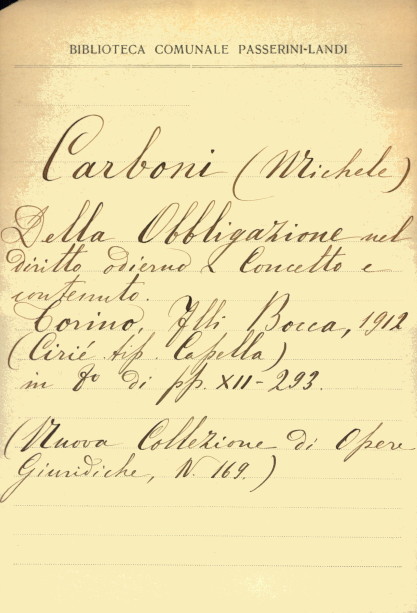 BIBLIOTECA COMUNALE PASSERINI-LANDI
Carboni (Michele)
Della Obbligazione nel
diritto odierno & Concetto e
contenuto.
Torino, Flli Bocca, 1912
(Cirié tip. Capella)
in 8º di pp. XII-293.
(Nuova Collezione di Opere
Giuridiche, N. 169.)